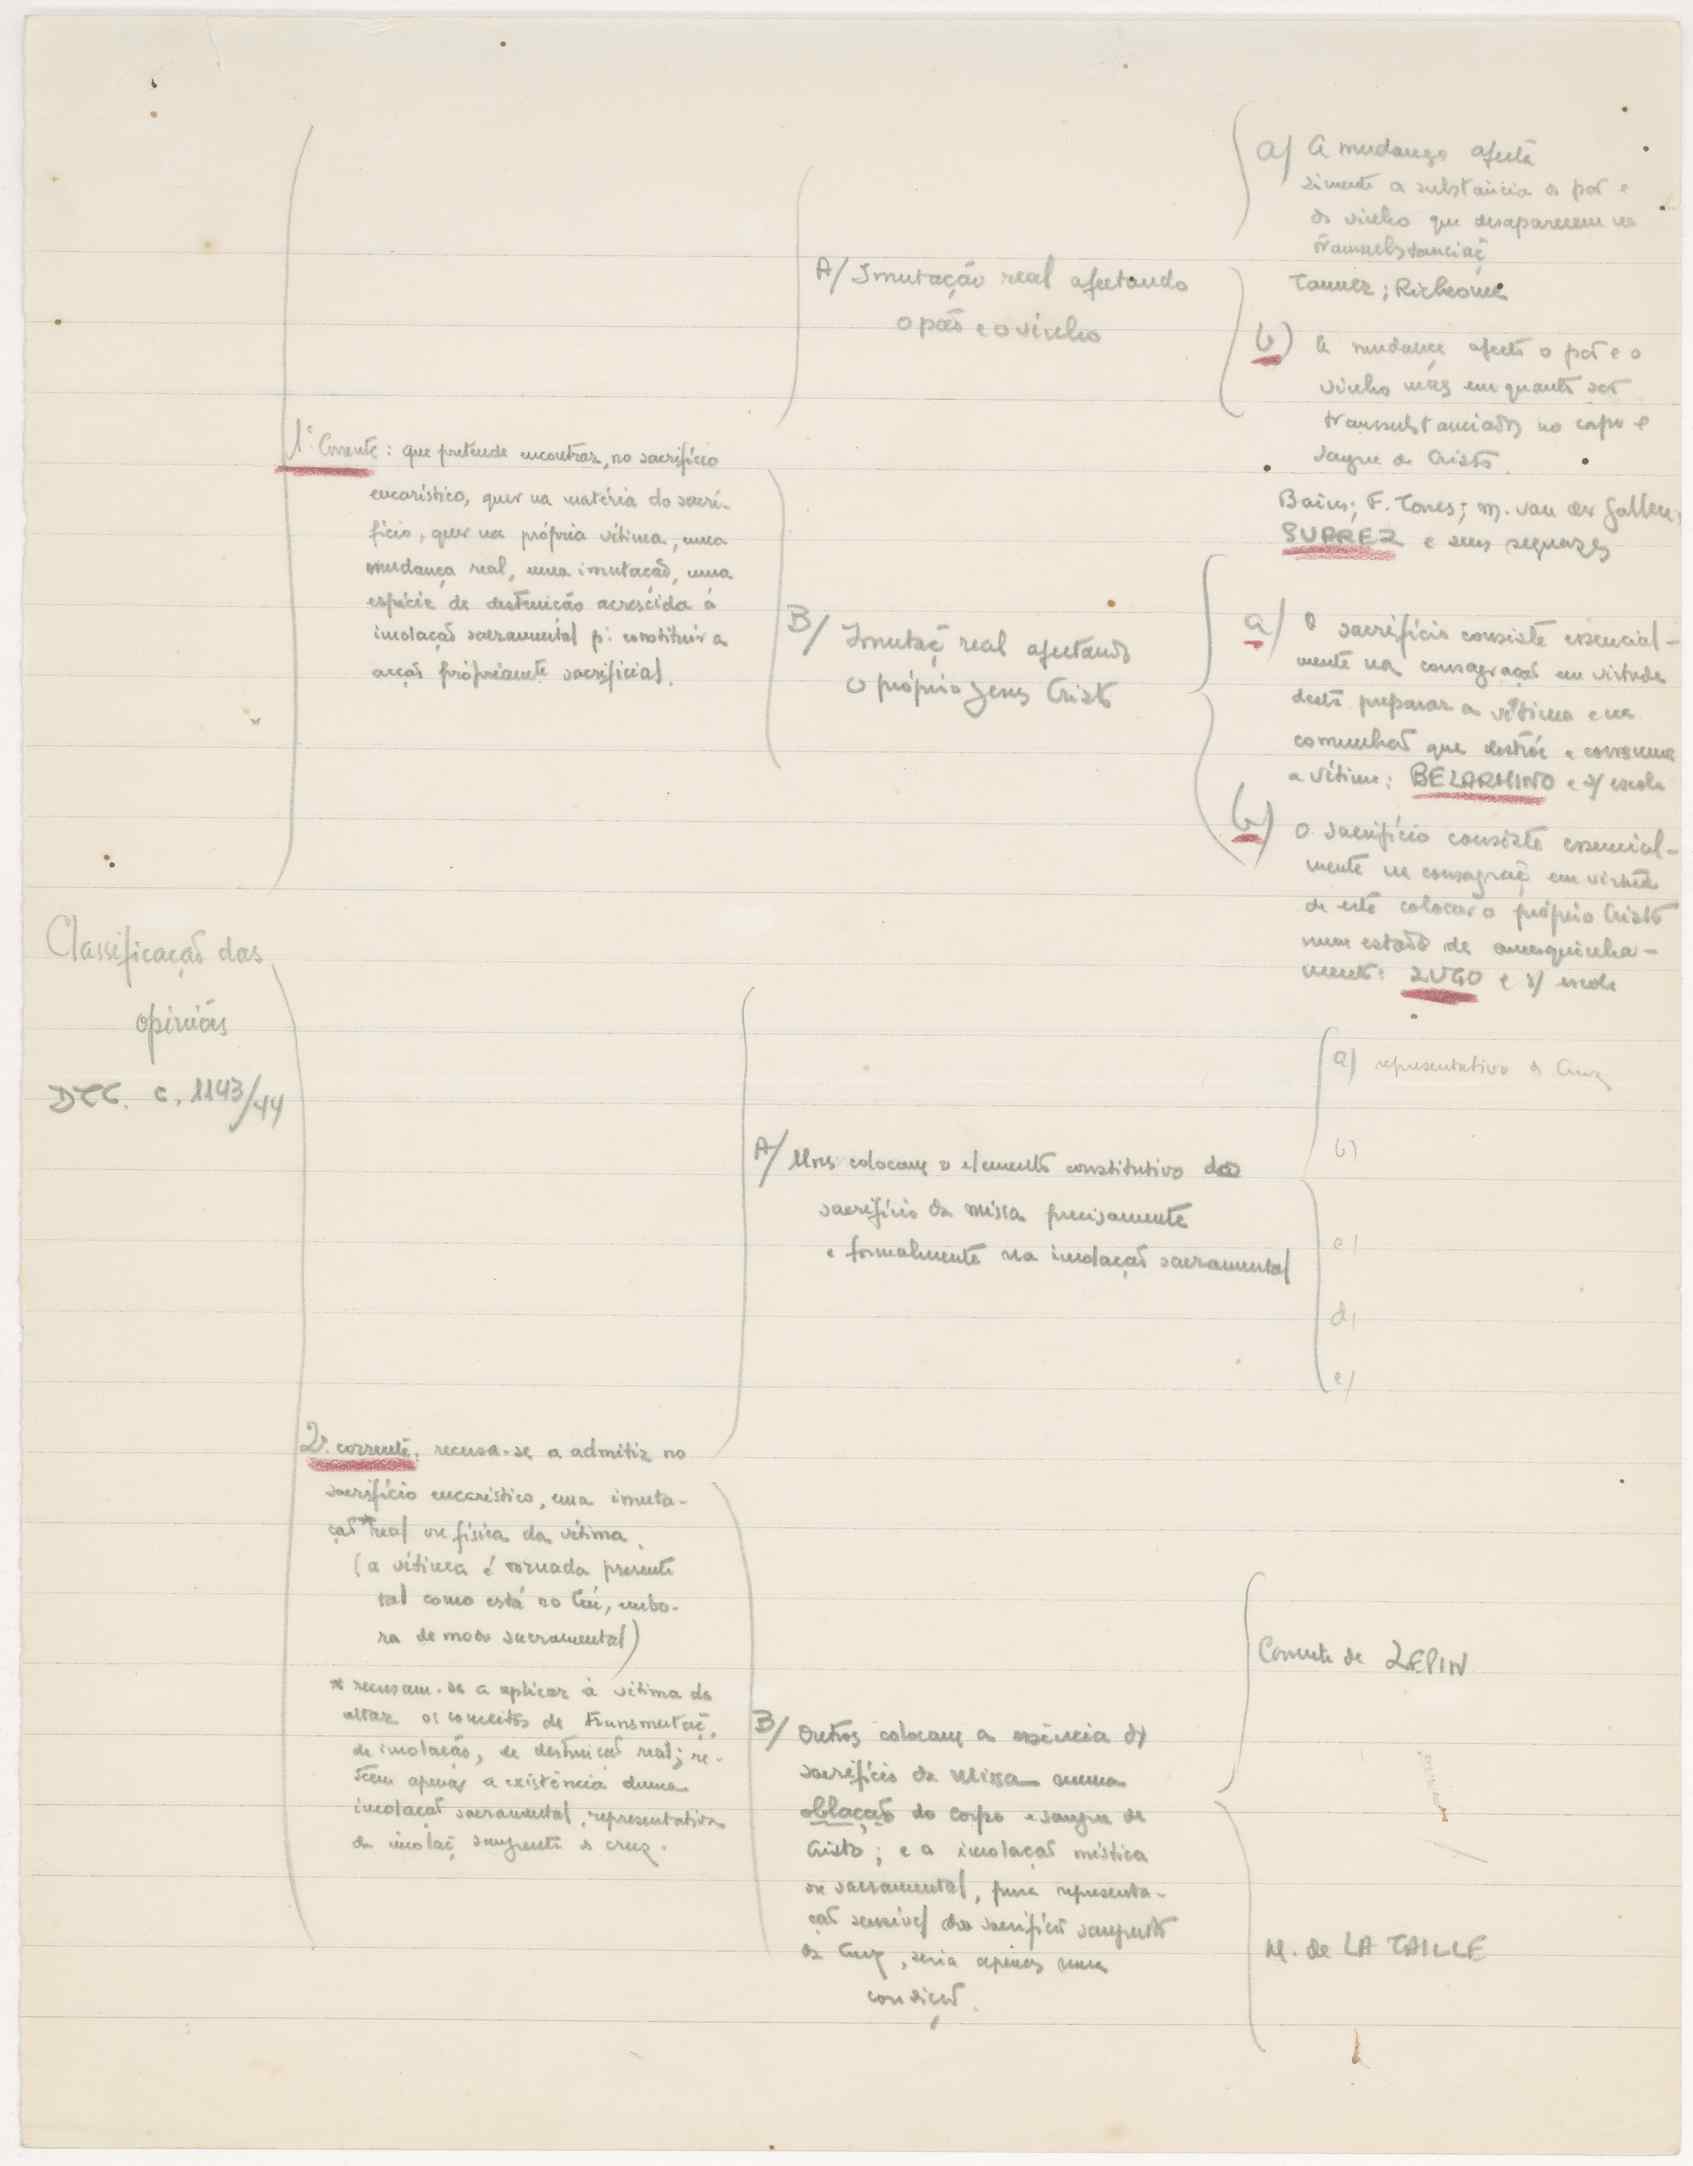 Classificação das
opiniões
DTC. c. 1143/44
1ª Corrente: que pretende encontrar, no sacrifício
eucarístico, quer na matéria do sacri-
fício, quer na própria vítima, uma
mudança real, uma imutação, uma
espécie de destruição acrescida à
imolação sacramental p: constituir a
acção pròpriamente sacrificial.
A/ Imutação real afectando
o pão e o vinho
a) A mudança afecta
a substância do pão e
do vinho que desaparecem na
transubstanciaç̃
Tanner; Richeome
b) A mudança afecta o pão e o
vinho mas em quanto são
transubstanciados no corpo e
sangue de Cristo.
Baius; F. Torres; M. van der Gallen;
SUAREZ e seus sequazes
B/ Imutaç̃ real afectando
o próprio Jesus Cristo
a) O sacrifício consiste essencial-
mente na consagração em virtude
desta preparar a vítima e na
comunhão que destrói e consuma
a vítima: BELARMINO e s/ escola
b) O sacrifício consiste essencial-
mente na consagraç̃ em virtude
de esta colocar o próprio Cristo
num estado de amesquinha-
mento: LUGO e s/ escola
2ª. corrente. recusa-se a admitir no
sacrifício eucarístico, uma imuta-
ção* real ou física da vítima.
(a vítima é tornada presente
tal como está no Céu, embo-
ra de modo sacramental)
* recusam-se a aplicar à vítima do
altar os conceitos de transmutaç̃,
de imolação, de destruição real; re-
têm apenas a existência duma
imolação sacramental, representativa
da imolaç̃ sangrenta da cruz.
A/ Uns colocam o elemento constitutivo do
sacrifício da missa precisamente
e formalmente na imolação sacramental
a) representativa da Cruz
b)
c)
d)
e)
B/ Outros colocam a essência do
sacrifício da Missa numa
oblação do corpo e sangue de
Cristo; e a imolação mística
ou sacramental, pura representa-
ção sensível do sacrifício sangrento
da Cruz, seria apenas uma
condição.
Corrente de LEPIN
M. de LA TAILLE